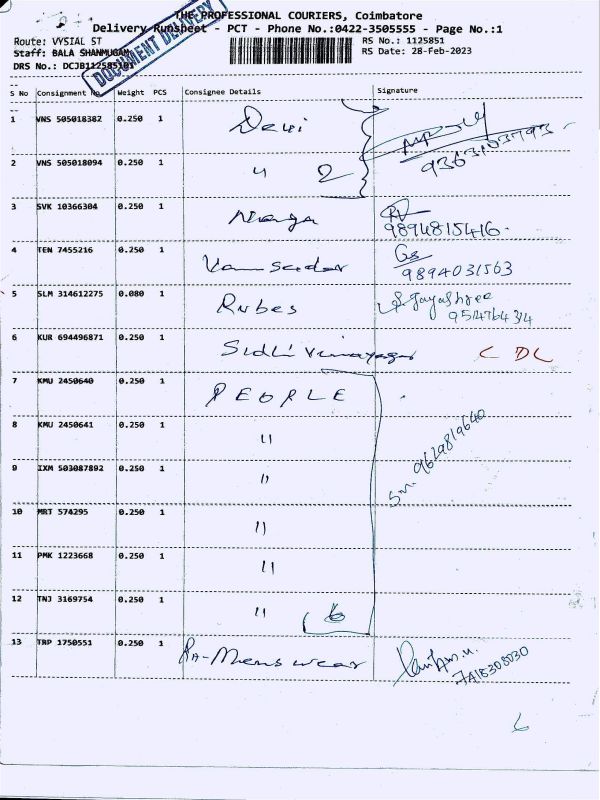 THE PROFESSIONAL COURIERS, Coimbatore
Delivery Runsheet - PCT - Phone No.:0422-3505555 - Page No.:1
DOCUMENT DELIVERY
Route: VYSIAL ST RS No.: 1125851
Staff: BALA SHANMUGAM RS Date: 28-Feb-2023
DRS No.: DCJB1125851
S No Consignment No. Weight PCS Consignee Details Signature
1 VNS 505018382 0.250 1 Devi
9363103793
2 VNS 505018094 0.250 1 " 2
3 SVK 10366304 0.250 1 Naga
9894815416.
4 TEN 7455216 0.250 1 Gs
9894031563
5 SLM 314612275 0.080 1 Rubes S. Jayashree
6 KUR 694496871 0.250 1 Sidhi Vinayagar C DL
7 KMU 2450640 0.250 1 PEOPLE
8 KMU 2450641 0.250 1 " 9629819640
9 IXM 503087892 0.250 1 "
10 MRT 574295 0.250 1 "
11 PMK 1223668 0.250 1 "
12 TNJ 3169754 0.250 1 " 6
13 TRP 1750551 0.250 1 Mens wear
6